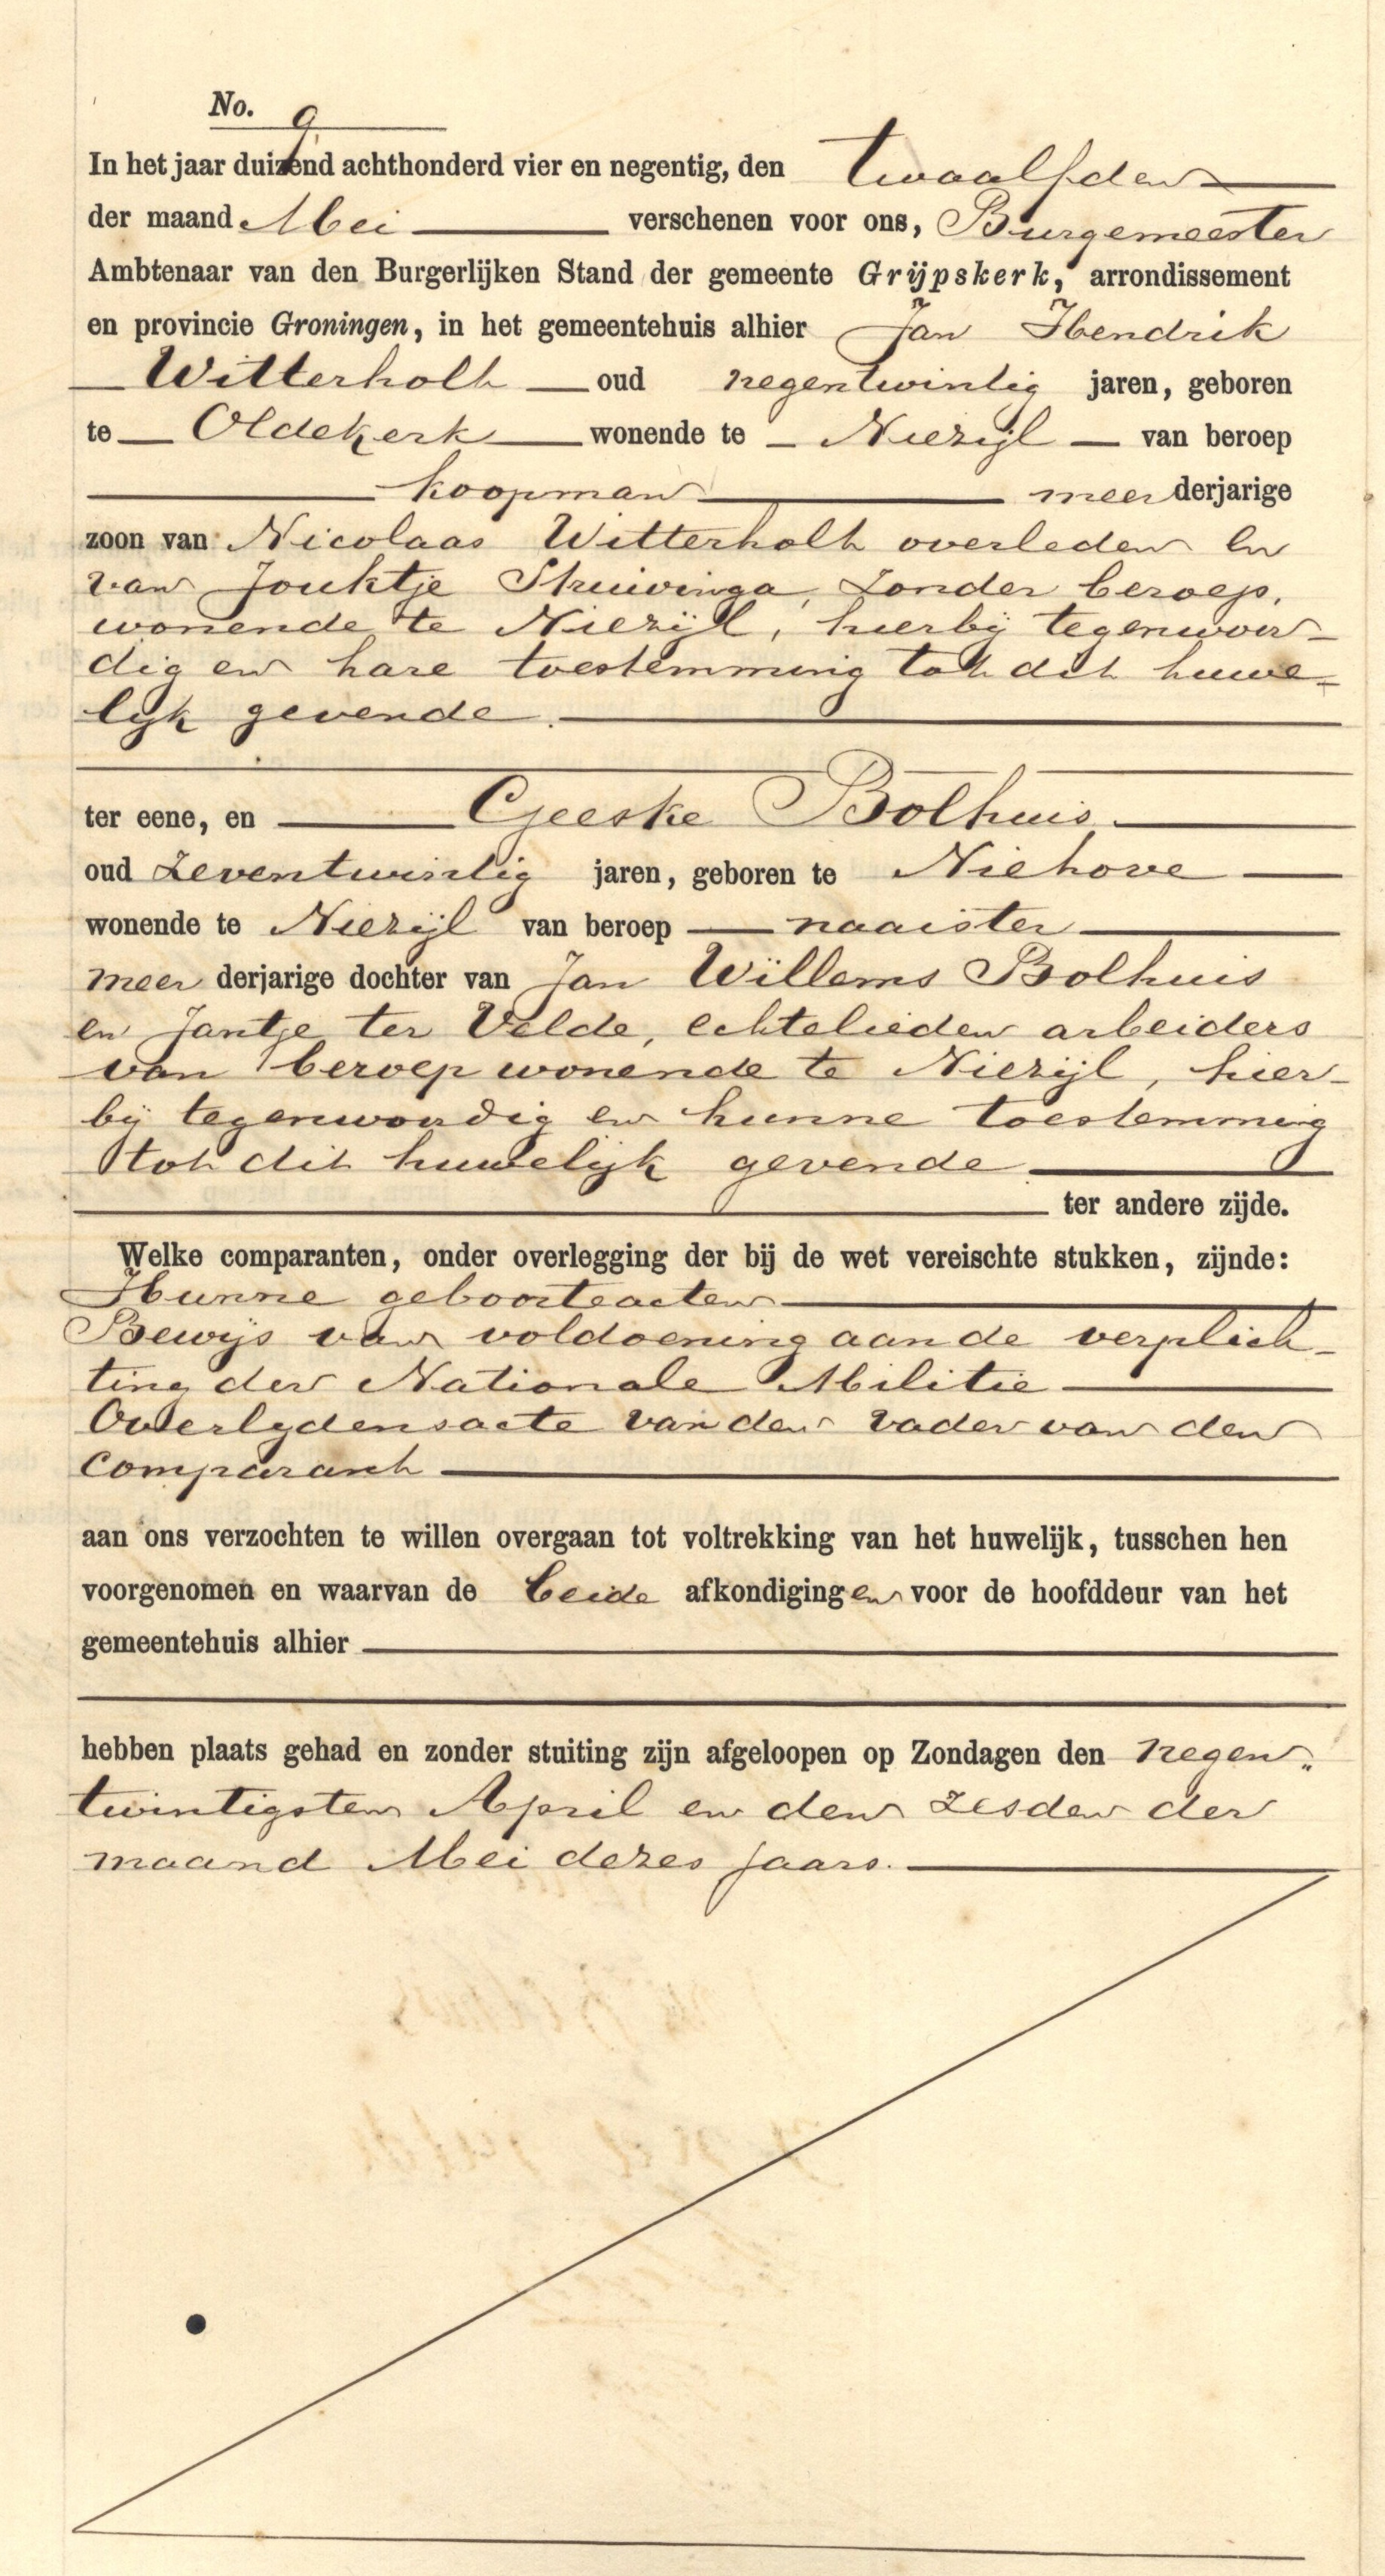 No. 9
In het jaar duizend achthonderd vier en negentig, den twaalfden
der maand Mei verschenen voor ons, Burgemeester
Ambtenaar van den Burgerlijken Stand der gemeente Grijpskerk, arrondissement
en provincie Groningen, in het gemeentehuis alhier Jan Hendrik
Witterholt oud negentwintig jaren, geboren
te Oldekerk wonende te Niezijl van beroep
koopman meerderjarige
zoon van Nicolaas Witterholt overleden en
van Jouktje Struivinga, zonder beroep,
wonende te Niezijl, hierbij tegenwoor-
dig en hare toestemming tot dit huwe-
lijk gevende.
ter eene, en Geeske Bolhuis,
oud zeventwintig jaren, geboren te Niehove
wonende te Niezijl van beroep naaister
meerderjarige dochter van Jan Willems Bolhuis
en Jantje ter Velde, echtelieden arbeiders
van beroep wonende te Niezijl, hier-
bij tegenwoordig en hunne toestemming
tot dit huwelijk gevende
ter andere zijde.
Welke comparanten, onder overlegging der bij de wet vereischte stukken, zijnde:
Hunne geboorteacten
Bewijs van voldoening aan de verplich-
ting der Nationale Militie
Overlydensacte van den vader van den
comparant
aan ons verzochten te willen overgaan tot voltrekking van het huwelijk, tusschen hen
voorgenomen en waarvan de beide afkondigingen voor de hoofddeur van het
gemeentehuis alhier
hebben plaats gehad en zonder stuiting zijn afgeloopen op Zondagen den negen„
twintigsten April en den zesden der
maand Mei dezes jaars.